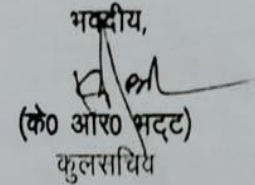 भवदीय,
(के0 आर0 भट्ट)
कुलसचिव